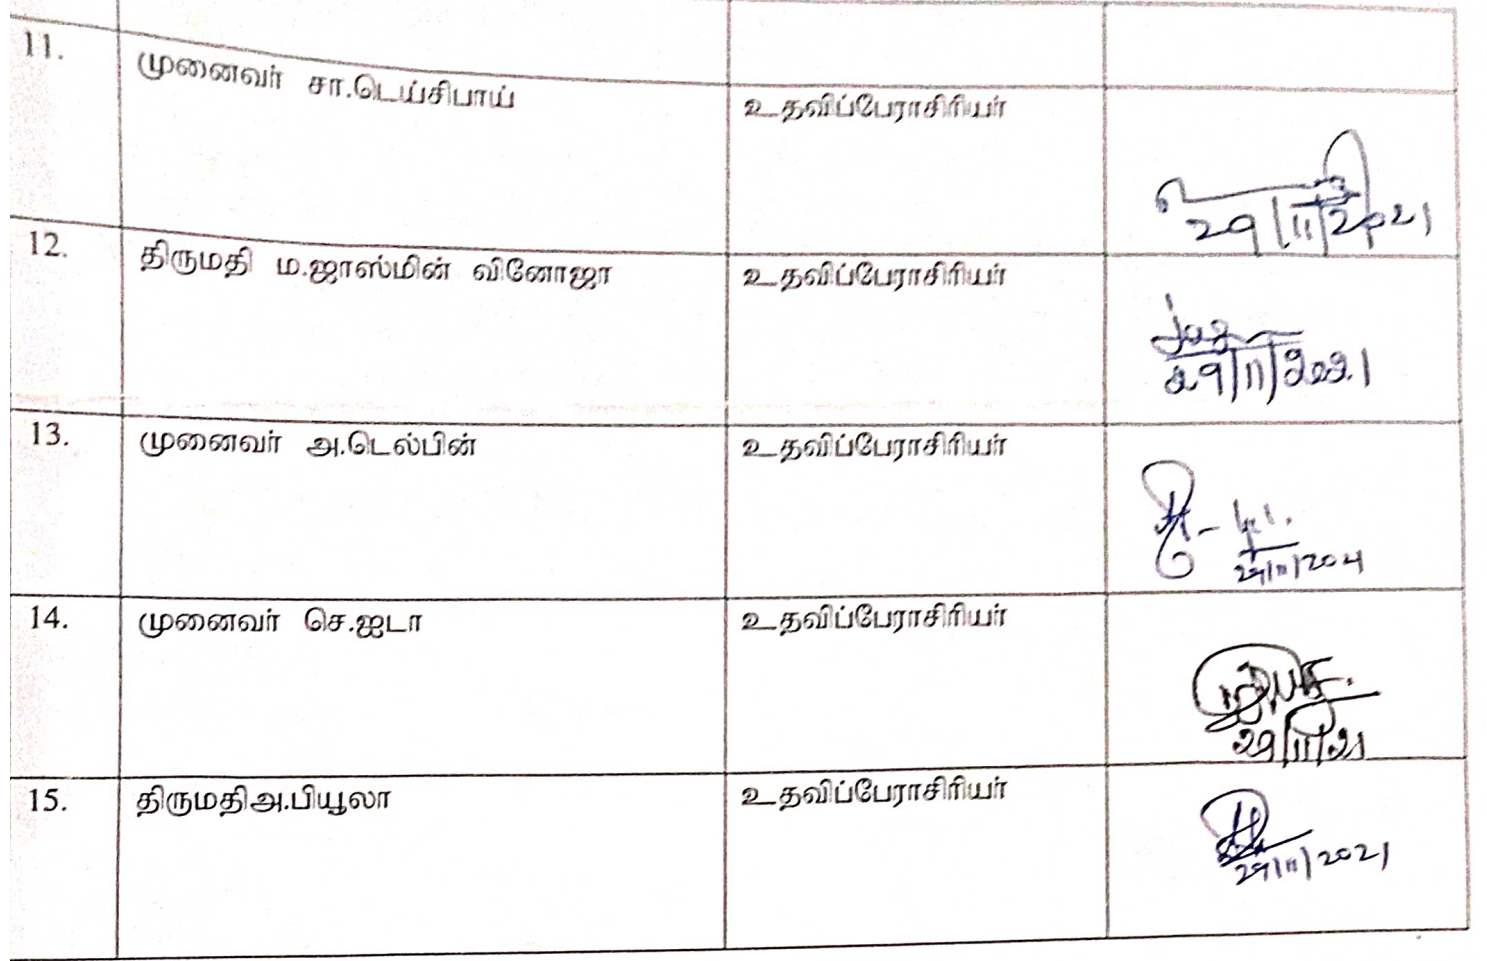 11. முனைவர் சா.டெய்சிபாய் உதவிப்பேராசிரியர்
29/11/2021
12. திருமதி ம.ஜாஸ்மின் வினோஜா உதவிப்பேராசிரியர்
29/11/2021
13. முனைவர் அ.டெல்பின் உதவிப்பேராசிரியர்
29/11/2021
14. முனைவர் செ.ஐடா உதவிப்பேராசிரியர்
29/11/21
15. திருமதிஅ.பியூலா உதவிப்பேராசிரியர்
29/11/2021